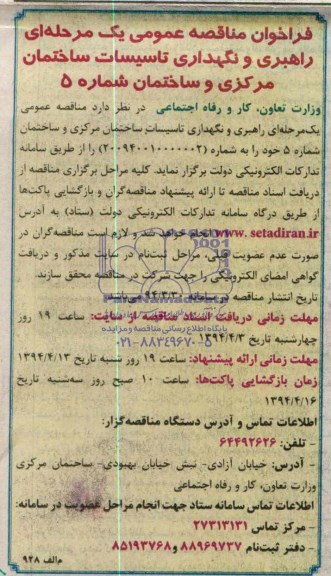 فراخوان مناقصه عمومی یک مرحله‌ای
راهبری و نگهداری تاسیسات ساختمان
مرکزی و ساختمان شماره ۵
وزارت تعاون، کار و رفاه اجتماعی در نظر دارد مناقصه عمومی
یک‌مرحله‌ای راهبری و نگهداری تاسیسات ساختمان مرکزی و ساختمان
شماره ۵ خود را به شماره (۲۰۰۹۴۰۰۱۰۰۰۰۰۰۲) را از طریق سامانه
تدارکات الکترونیکی دولت برگزار نماید. کلیه مراحل برگزاری مناقصه از
دریافت اسناد مناقصه تا ارائه پیشنهاد مناقصه‌گران و بازگشایی پاکت‌ها
از طریق درگاه سامانه تدارکات الکترونیکی دولت (ستاد) به آدرس
www.setadiran.ir انجام خواهد شد و لازم است مناقصه‌گران در
صورت عدم عضویت قبلی، مراحل ثبت‌نام در سایت مذکور و دریافت
گواهی امضای الکترونیکی را جهت شرکت در مناقصه محقق سازند.
تاریخ انتشار مناقصه در سامانه می‌باشد
مهلت زمانی دریافت اسناد مناقصه از سایت: ساعت ۱۹ روز
چهارشنبه تاریخ ۱۳۹۴/۴/۳
مهلت زمانی ارائه پیشنهاد: ساعت ۱۹ روز شنبه تاریخ ۱۳۹۴/۴/۱۳
زمان بازگشایی پاکت‌ها: ساعت ۱۰ صبح روز سه‌شنبه تاریخ
۱۳۹۴/۴/۱۶
اطلاعات تماس و آدرس دستگاه مناقصه‌گزار:
- تلفن: ۶۴۴۹۲۶۲۶
- آدرس: خیابان آزادی- نبش خیابان بهبودی- ساختمان مرکزی
وزارت تعاون، کار و رفاه اجتماعی
اطلاعات تماس سامانه ستاد جهت انجام مراحل عضویت در سامانه:
- مرکز تماس ۲۷۳۱۳۱۳۱
- دفتر ثبت‌نام ۸۸۹۶۹۷۳۷ و ۸۵۱۹۳۷۶۸
م‌الف ۹۲۸
پایگاه اطلاع رسانی مناقصه و مزایده
۰۲۱-۸۸۳۴۹۶۷۰-۵